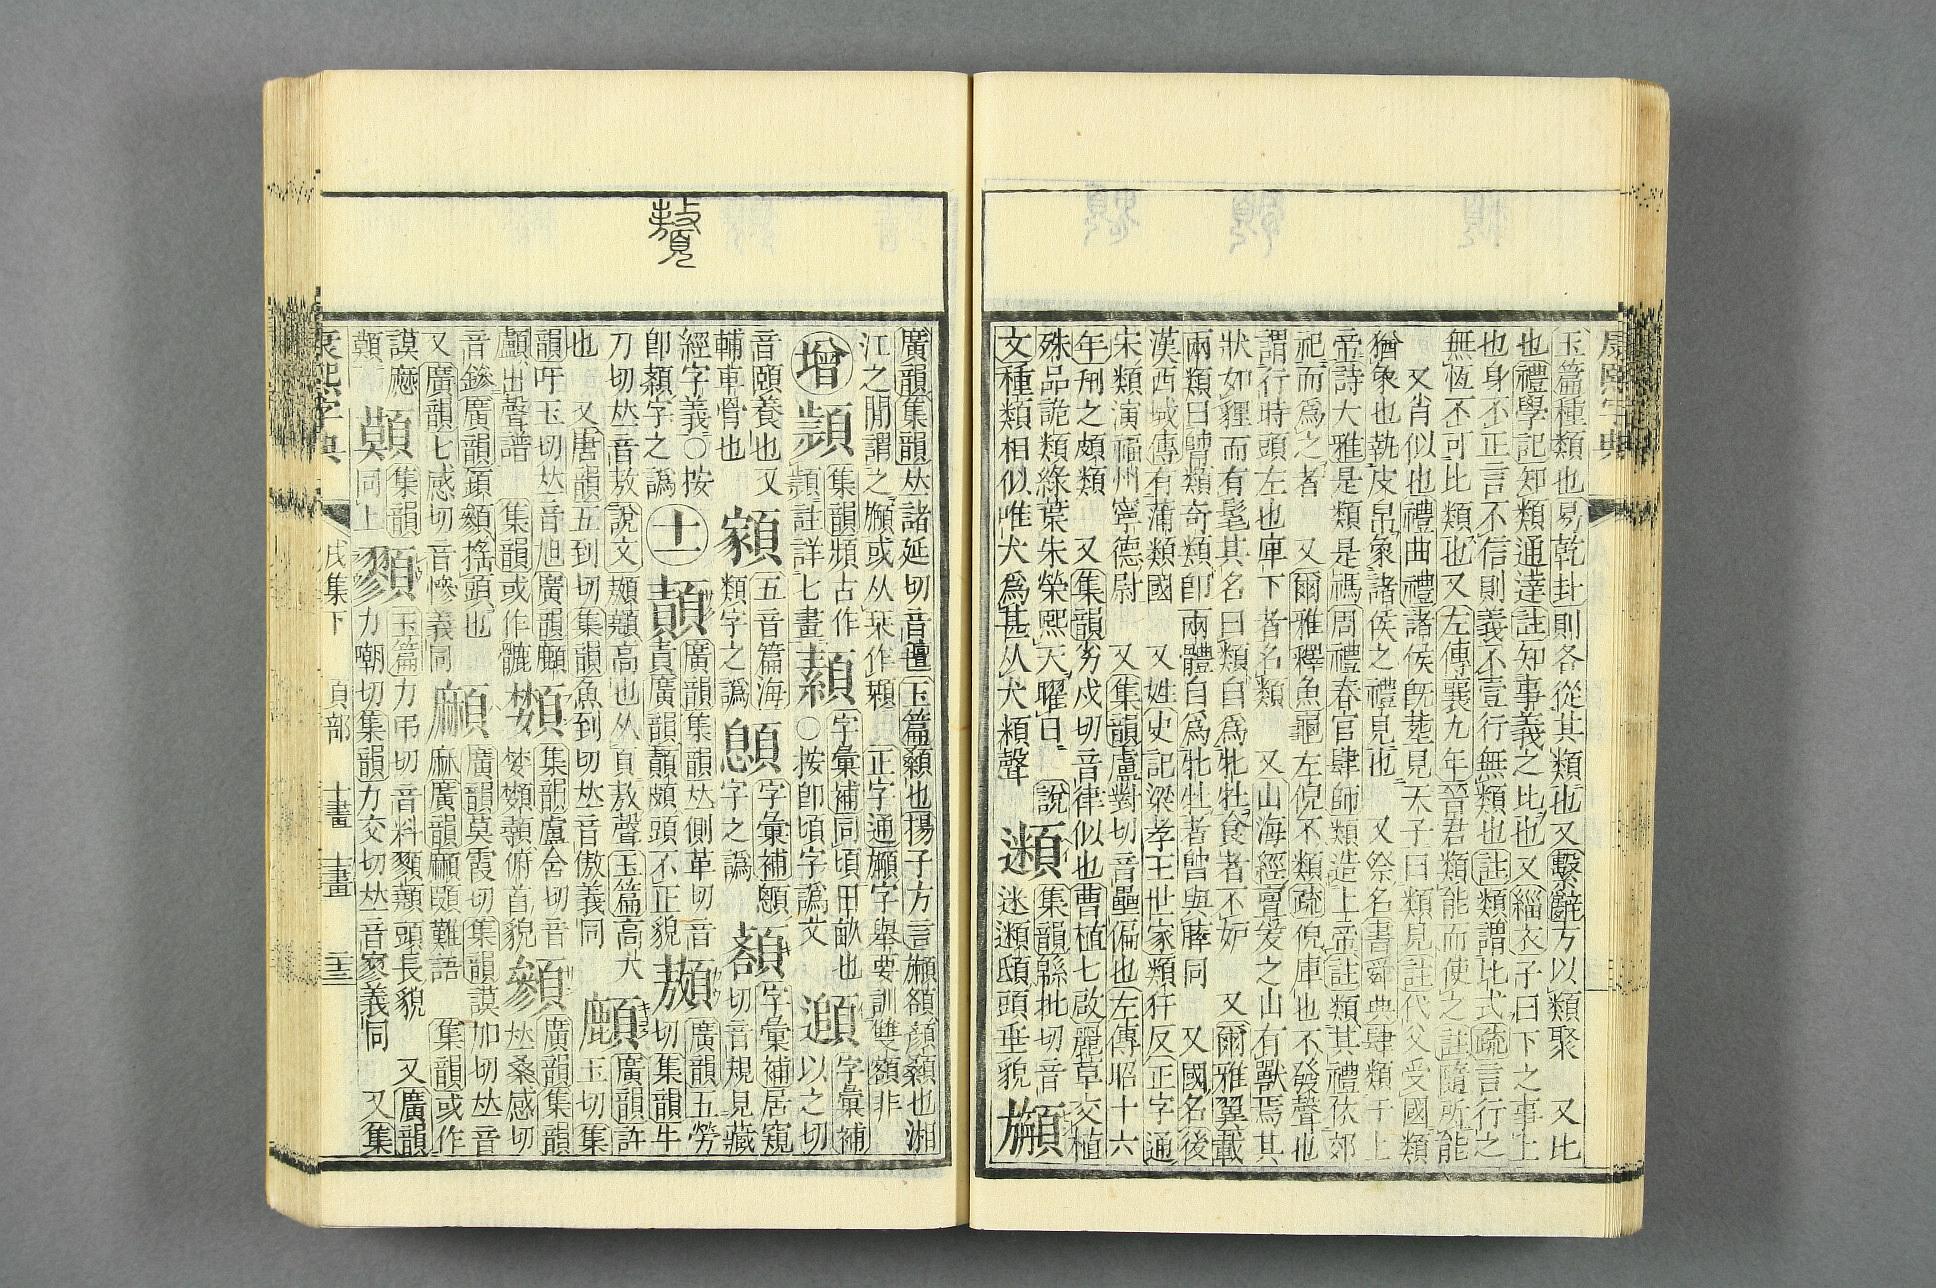 康熙字典
玉篇種類也易乾卦則各從其類也又繫辭方以類聚　又比
也禮學記知類通達註知事義之比也又緇衣子曰下之事上
也身不正言不信則義不壹行無類也註類謂比式疏言行之
無恆不可比類也又左傳襄九年晉君類能而使之註隨所能
又肖似也禮曲禮諸侯旣葬見天子曰類見註代父受國類
猶象也執皮帛象諸侯之禮見也　又祭名書舜典肆類于上
帝詩大雅是類是禡周禮春官肆師類造上帝註類其禮依郊
祀而爲之者　又爾雅釋魚龜左倪不類疏倪庳也不發聲也
謂行時頭左也庳下者名類　又山海經亶爰之山有獸焉其
狀如貍而有髦其名曰類自爲牝牡食者不妒　又爾雅翼載
兩類曰帥類奇類卽兩體自爲牝牡者皆與睦同　又國名後
漢西域傳有蒲類國　又姓史記梁孝王世家類犴反正字通
宋類演福州寧德尉　又集韻盧對切音壘偏也左傳昭十六
年刑之頗類　又集韻劣戍切音律似也曹植七啟麗草交植
殊品詭類綠葉朱榮熙天曜日　說　集韻緜批切音
文種類相似唯犬爲甚从犬頪聲　迷　頭垂貌
廣韻集韻𠀤諸延切音邅玉篇顙也揚子方言　額顏顙也湘
江之閒謂之　或从　作　正字通　字舉要訓雙額非
增　集韻頻古作　字彙補同頃田畝也　字彙補
註詳七畫　○按卽頃字譌文　以之切
音頤養也又　五音篇海　字彙補　字彙補居窺
輔車骨也　類字之譌　字之譌　切音規見藏
經字義○按　廣韻集韻𠀤側革切音　廣韻五勞
卽　字之譌　十一　責廣韻　頭不正貌　切集韻牛
刀切𠀤音敖說文　高也从頁敖聲玉篇高大　廣韻許
也　又唐韻五到切集韻魚到切𠀤音傲義同　玉切集
韻吁玉切𠀤音旭廣韻　集韻盧含切音　廣韻集韻
顱出聲譜　集韻或作髗　婪　俯首貌　𠀤桑感切
音　廣韻　搖頭也　廣韻莫霞切集韻謨加切𠀤音
又廣韻七感切音慘義同　麻廣韻　難語　集韻或作
謨　集韻　玉篇力弔切音料　頭長貌　又廣韻
同上　力嘲切集韻力交切𠀤音　義同　又集
康熙字典　戌集下　頁部　十畫　十一畫